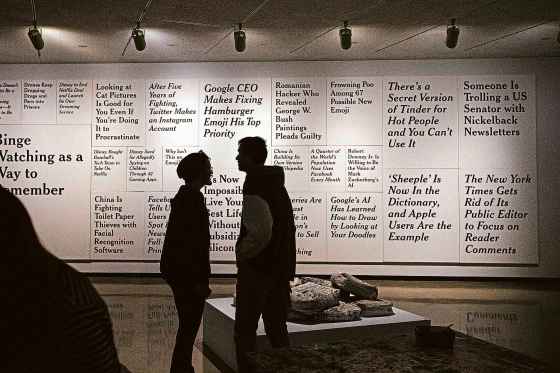 Drones Keep
Dropping
Drugs and
Porn into
Prisons
Disney to End
Netflix Deal
and Launch
Its Own
Streaming
Service
Looking at
Cat Pictures
Is Good for
You Even if
You're Doing
It to
Procrastinate
After Five
Years of
Fighting,
Twitter Makes
an Instagram
Account
Google CEO
Makes Fixing
Hamburger
Emoji His Top
Priority
Romanian
Hacker Who
Revealed
George W.
Bush
Paintings
Pleads Guilty
Frowning Poo
Among 67
Possible New
Emoji
There's a
Secret Version
of Tinder for
Hot People
and You Can't
Use It
Someone Is
Trolling a US
Senator with
Nickelback
Newsletters
Binge
Watching as a
Way to
Remember
Disney Sued
for Allegedly
Spying on
Children
Through 42
Gaming Apps
Why Isn't
This
China Is
Building Its
Own Version
A Quarter of
the World's
Population
Now Uses
Facebook
Every Month
Robert
Downey Jr. Is
Willing to Be
the Voice of
Mark
Zuckerberg's
AI
China Is
Fighting
Toilet Paper
Thieves with
Facial
Recognition
Software
Google's AI
Has Learned
How to Draw
by Looking at
Your Doodles
'Sheeple' Is
Now in the
Dictionary,
and Apple
Users Are the
Example
The New York
Times Gets
Rid of Its
Public Editor
to Focus on
Reader
Comments